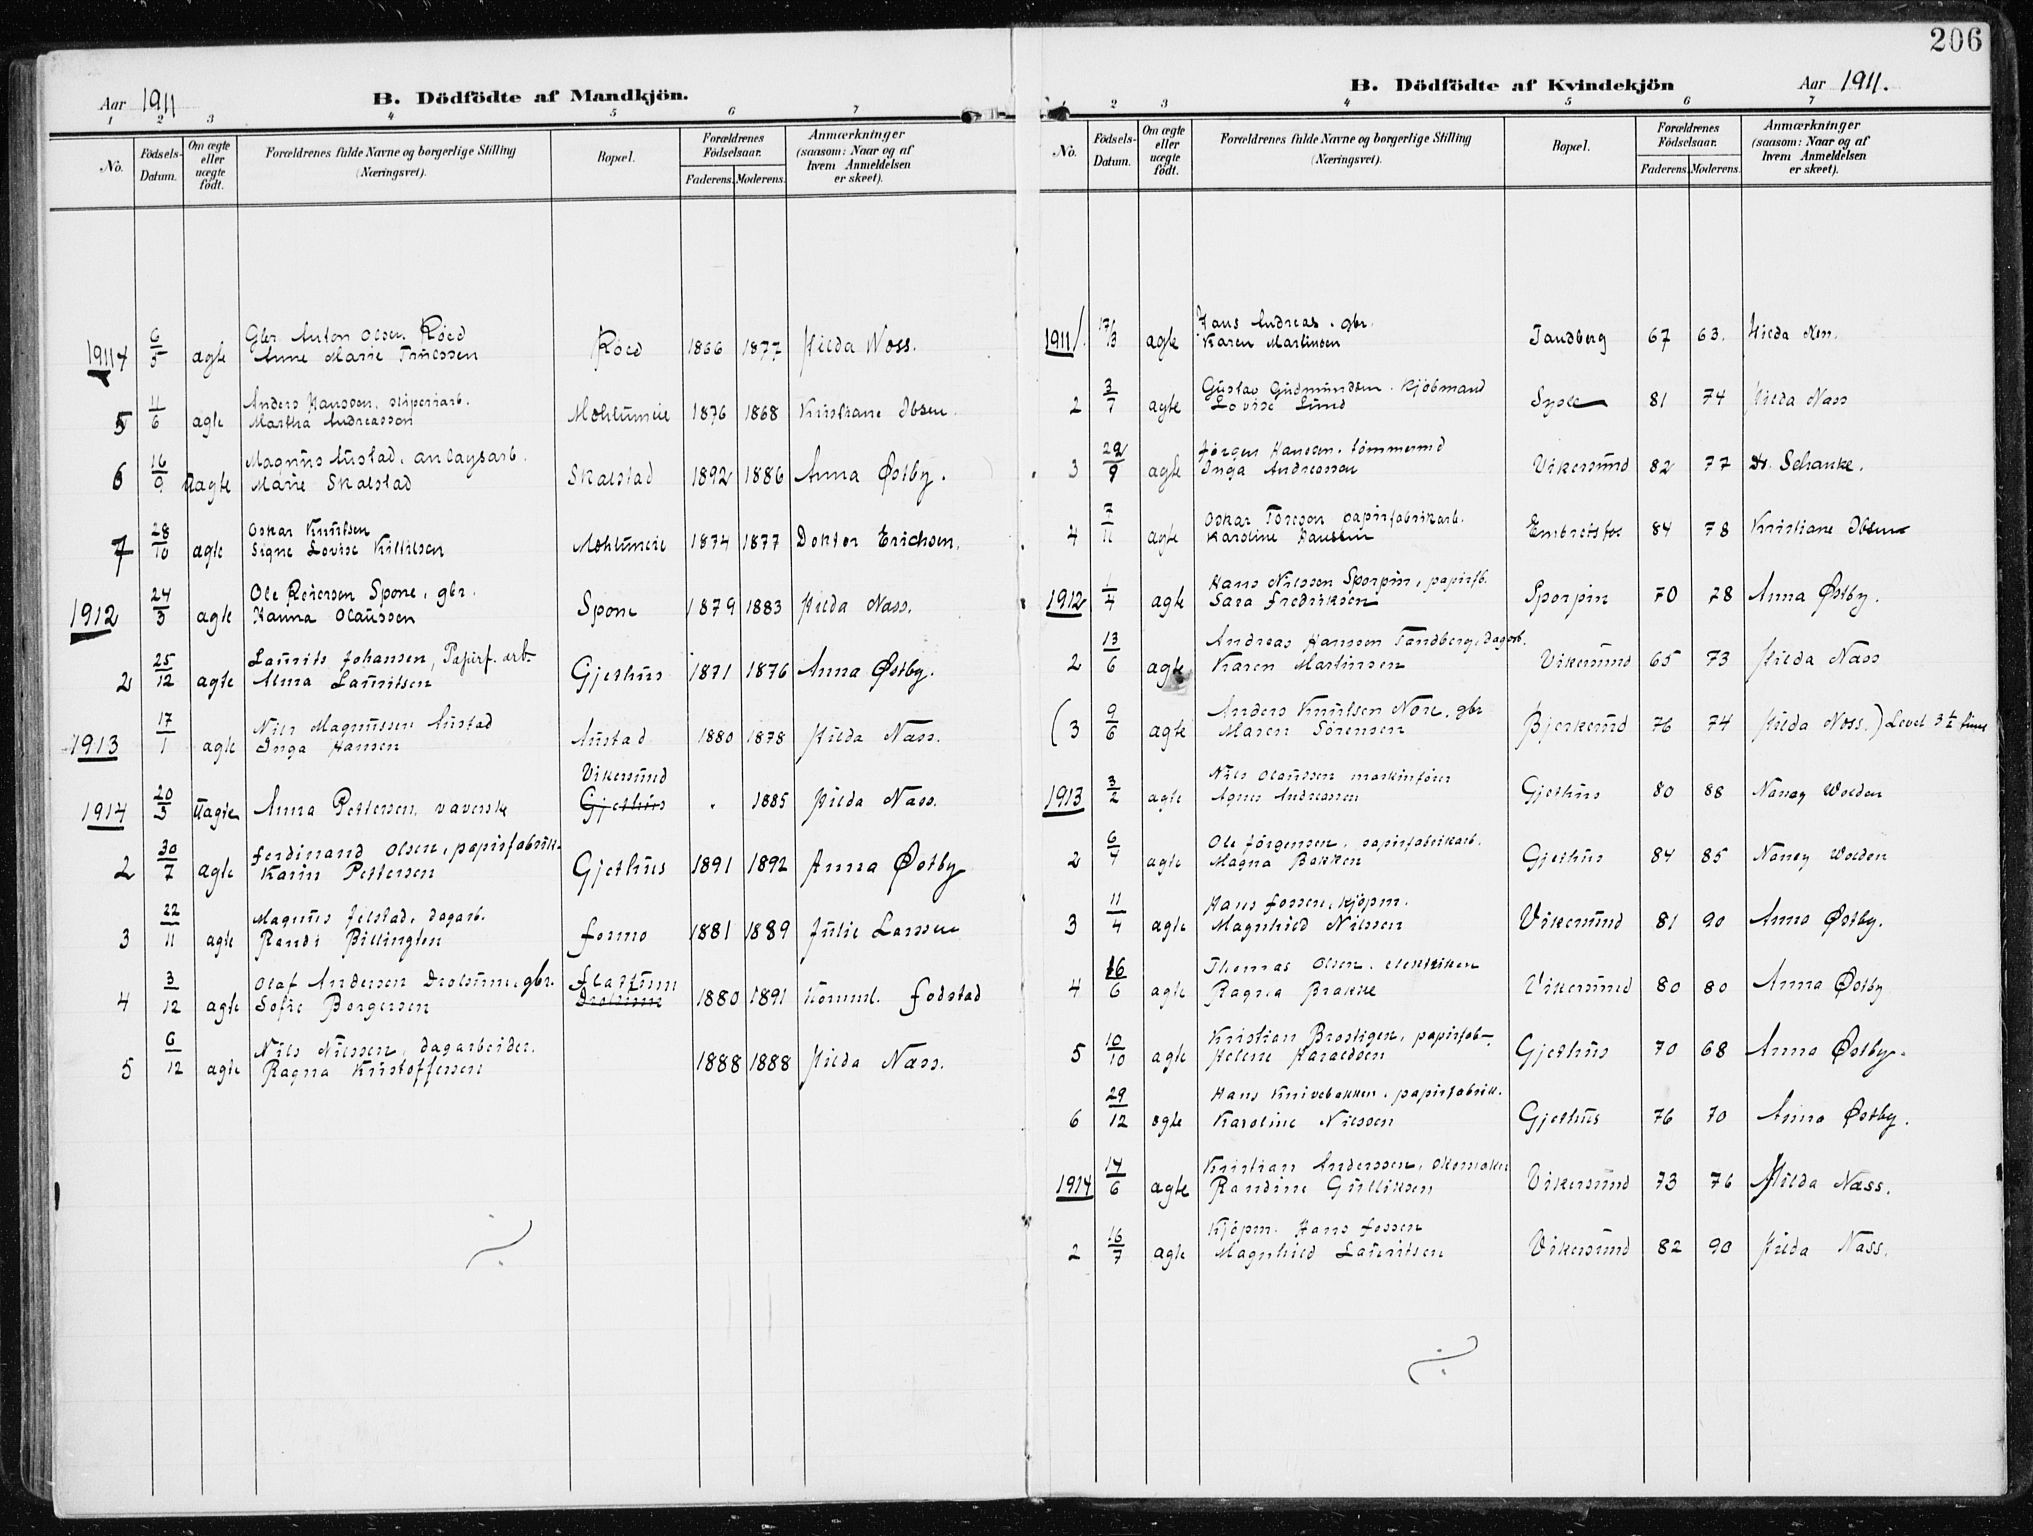 206
Aar 1911
B. Dödfödte af Mandkjön.
1 2 3 4 5 6 7
No.
Födsels-Datum.
Om ægte eller uægte födt.
Forældrenes fulde Navne og borgerlige Stilling (Næringsvei).
Bopæl.
Forældrenes Födselsaar.
Faderens. Moderens.
Anmærkninger (saasom: Naar og af hvem Anmeldelsen er skeet).
Gbr. Anton Olsen Röed
1911 4 6/5 ægte Anne Marie Röed 1866 1877 Hilda Næss.
Anders Hanssen, sliperiarb.
5 11/6 ægte Martha Andreassen Mohlumeie 1876 1868 Kristiane Ibsen.
Magnus Austad, anlægsarb.
6 16/9 Uægte Marie Skalstad Skalstad 1892 1886 Anna Østby.
Oskar Knutsen
7 28/10 ægte Signe Lovise Killilsen Mohlumeie 1874 1877 Doktor Erichsen.
Ole Reiersen Spone, gbr.
1912 24/3 ægte Hanna Olaussen Spone 1879 1883 Hilda Næss.
Laurits Johansen, Papirf. arb.
2 25/12 ægte Alma Lauritsen Gjethus 1871 1876 Anna Østby.
Nils Magnussen Austad
1913 17/1 ægte Inga Hansen Austad 1880 1878 Hilda Næss.
Vikersund
1914 20/3 Uægte Anna Pettersen, væverske Gjethus . 1885 Hilda Næss.
Ferdinand Olsen, papirfabrik.
2 30/7 ægte Karin Pettersen Gjethus 1891 1892 Anna Østby
Magnus Jelstad, dagarb.
3 22/11 ægte Randi Billington Formo 1881 1889 Julie Larsen
Olaf Andersen Drolsum, gbr. Flattum
4 3/12 ægte Sofie Borgersen Drolsum 1880 1891 Komml. Fodstad
Nils Nilssen, dagarbeider.
5 6/12 ægte Ragna Kristoffersen 1888 1888 Hilda Næss.
B. Dödfödte af Kvindekjön
Aar 1911.
1 2 3 4 5 6 7
No.
Födsels-Datum.
Om ægte eller uægte födt.
Forældrenes fulde Navne og borgerlige Stilling (Næringsvei).
Bopæl.
Forældrenes Födselsaar.
Faderens. Moderens.
Anmærkninger (saasom: Naar og af hvem Anmeldelsen er skeet).
Hans Andreas. gbr.
1911 1. 17/3 ægte Karen Martinsen Tandberg 67 63. Hilda
Gustav Gudmundsen. Kjöbmand
2 3/7 ægte Lovise Lund Sysle 81 74 Hilda Næss
Jörgen Hansen, tömmermd
3 29/9 ægte Inga Andreassen Vikersund 82 77 Dr. Schanke.
Oskar papirfabrikarb.
4 7/11 ægte Karoline Hanssen Embretsfos 84 78 Kristiane Ibsen
Hans Nilssen Sporpin, papirfb.
1912 1/4 ægte Sara Fredriksen Sporpin 70 78 Anna Østby.
Andreas Hansen Tandberg, dagarb.
2 13/6 ægte Karen Martinsen Vikersund 65 73 Hilda Næss
Anders Knutsen Nore, gbr
(3 9/6 ægte Maren Sörensen Bjerkesund 76 74 Hilda Næss.) Levet 3½ time
Nils Olaussen maskinförer
1913 3/2 ægte Agnes Andreassen Gjethus 80 88 Nancy Wolden
Ole Jörgensen, papirfabrikarb.
2 6/4 ægte Magna Bakken Gjethus 84 85 Nancy Wolden
Hans Fossen, kjöpm.
3 11/4 ægte Magnhild Nilssen Vikersund 81 90 Anna Østby.
Thomas Olsen, elektriker
4 16/6 ægte Ragna Brække Vikersund 80 80 Anna Østby
Kristian Brostigen, papirfab.
5 10/10 ægte Helene Haraldsen Gjethus 70 68 Anna Østby.
Hans Knivebakken, papirfabrik.
6 29/12 ægte Karoline Nilssen Gjethus 76 70 Anna Østby.
Kristian Anderssen, skomaker
1914 14/6 ægte Randine Gulliksen Vikersund 73 76 Hilda Næss.
Kjöpm. Hans Fossen
2 16/7 ægte Magnhild Lauritsen Vikersund 82 90 Hilda Næss.